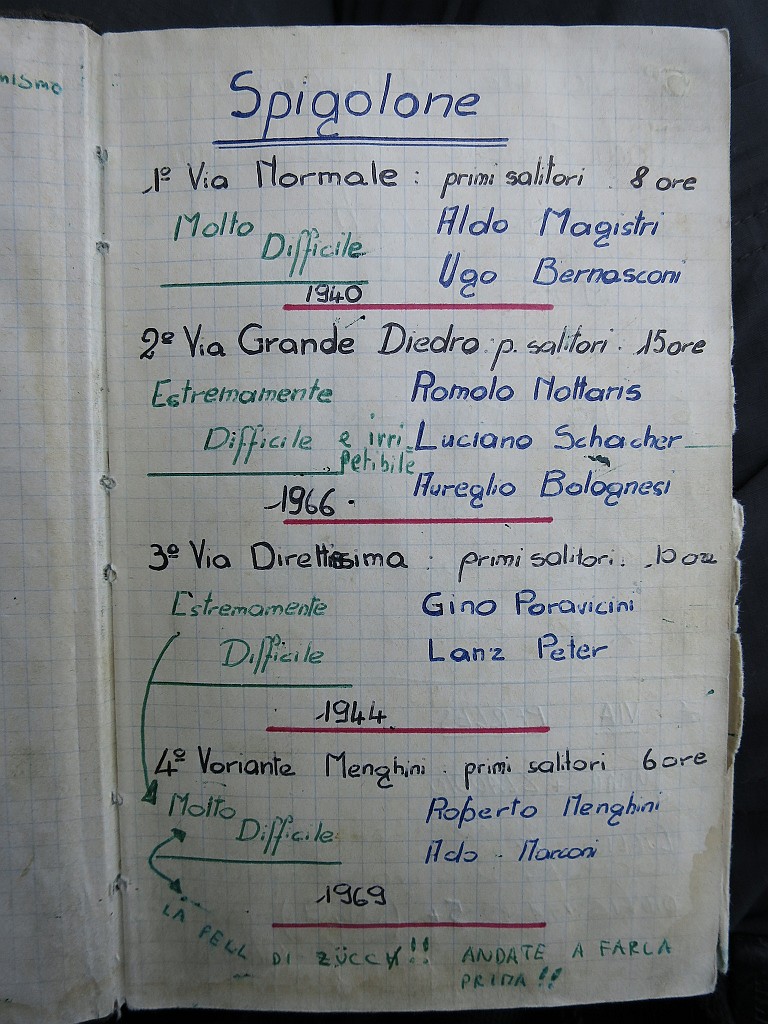 nismo
Spigolone
1º Via Normale : primi salitori . 8 ore
Molto Aldo Magistri
Difficile Ugo Bernasconi
1940
2º Via Grande Diedro : p. salitori . 15 ore
Estremamente Romolo Nottaris
Difficile e irri= Luciano Schacher
petibile Aureglio Bolognesi
1966.
3º Via Direttissima : primi salitori . 10 ore
Estremamente Gino Poravicini
Difficile Lanz Peter
1944
4º Variante Menghini . primi salitori 6 ore
Molto Roberto Menghini
Difficile Aldo Marconi
1969
LA PELL DI ZÜCCH!! ANDATE A FARLA
PRIMA!!